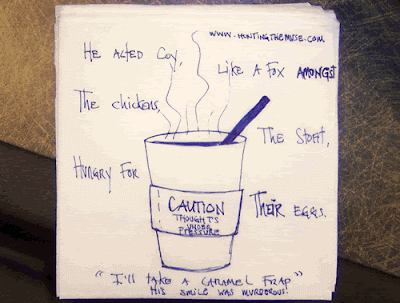 www.huntingthemuse.com
He acted coy,
Like a fox amongst
The chickens,
The stoat,
Hungry for
Their eggs.
CAUTION
THOUGHTS
UNDER
PRESSURE
"I'll take a caramel frap"
His smile was murderous!